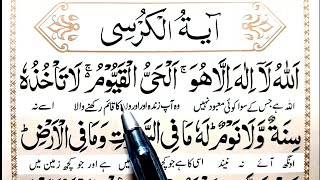 آیۃ الکرسی
اَللّٰهُ لَاۤ اِلٰهَ اِلَّا هُوَ ۚ اَلْحَیُّ الْقَیُّوْمُ ۚ لَا تَاْخُذُهٗ
اللہ ہے جس کے سوا کوئی معبود نہیں وہ آپ زندہ اور اوروں کا قائم رکھنے والا اسے نہ
سِنَةٌ وَّلَا نَوْمٌ ؕ لَهٗ مَا فِی السَّمٰوٰتِ وَمَا فِی الْاَرْضِ ؕ
اونگھ آئے نہ نیند اسی کا ہے جو کچھ میں ہے اور جو کچھ زمین میں